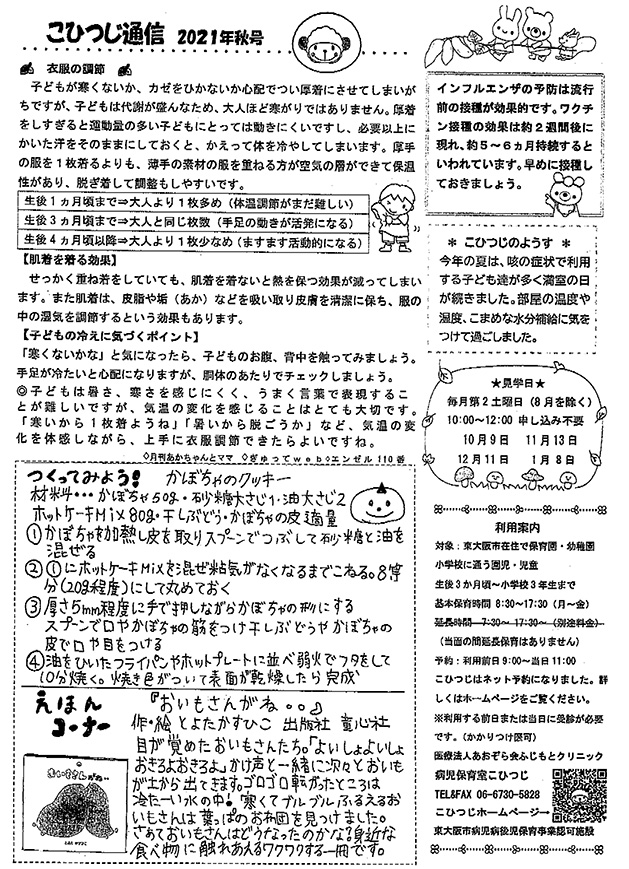 こひつじ通信 2021年秋号
衣服の調節
子どもが寒くないか、カゼをひかないか心配でつい厚着にさせてしまいが
ちですが、子どもは代謝が盛んなため、大人ほど寒がりではありません。厚着
をしすぎると運動量の多い子どもにとっては動きにくいですし、必要以上に
かいた汗をそのままにしておくと、かえって体を冷やしてしまいます。厚手
の服を1枚着るよりも、薄手の素材の服を重ねる方が空気の層ができて保温
性があり、脱ぎ着して調整もしやすいです。
生後1ヵ月頃まで⇒大人より1枚多め(体温調節がまだ難しい)
生後3ヵ月頃まで⇒大人と同じ枚数(手足の動きが活発になる)
生後4ヵ月頃以降⇒大人より1枚少なめ(ますます活動的になる)
【肌着を着る効果】
せっかく重ね着をしていても、肌着を着ないと熱を保つ効果が減ってしまい
ます。また肌着は、皮脂や垢(あか)などを吸い取り皮膚を清潔に保ち、服の
中の湿気を調節するという効果もあります。
【子どもの冷えに気づくポイント】
「寒くないかな」と気になったら、子どものお腹、背中を触ってみましょう。
手足が冷たいと心配になりますが、胴体のあたりでチェックしましょう。
◎子どもは暑さ、寒さを感じにくく、うまく言葉で表現するこ
とが難しいですが、気温の変化を感じることはとても大切です。
「寒いから1枚着ようね」「暑いから脱ごうか」など、気温の変
化を体感しながら、上手に衣服調節できたらよいですね。
◇月刊あかちゃんとママ ◇ぎゅってweb◇エンゼル110番
つくってみよう! かぼちゃのクッキー
材料・・・かぼちゃ50g・砂糖大さじ1・油大さじ2
ホットケーキMix 80g・干しぶどう・かぼちゃの皮適量
①かぼちゃを加熱し皮を取りスプーンでつぶして砂糖と油を
混ぜる
②①にホットケーキMixを混ぜ粘気がなくなるまでこねる。8等
分(20g程度)にして丸めておく
③厚さ5mm程度に手で押しながらかぼちゃの形にする
スプーンで口やかぼちゃの筋をつけ干しぶどうやかぼちゃの
皮で口や目をつける
④油をひいたフライパンやホットプレートに並べ弱火でフタをして
10分焼く。焼き色がついて表面が乾燥したら完成
えほん
コーナー
『おいもさんがね・・』
作・絵 とよたかずひこ 出版社 童心社
目が覚めたおいもさんたち。「よいしょよいしょ
おきろよおきろよ」かけ声と一緒に次々とおいも
が土から出てきます。ゴロゴロ転がったところは
冷たーい水の中!寒くてブルブルふるえるお
いもさんは葉っぱのお布団を見つけました。
さあておいもさんはどうなったのかな?身近な
食べ物に触れあえるワクワクする一冊です。
インフルエンザの予防は流行
前の接種が効果的です。ワクチ
ン接種の効果は約2週間後に
現れ、約5～6ヵ月持続すると
いわれています。早めに接種し
ておきましょう。
* こひつじのようす *
今年の夏は、咳の症状で利用
する子ども達が多く満室の日
が続きました。部屋の温度や
湿度、こまめな水分補給に気を
つけて過ごしました。
★見学日★
毎月第2土曜日(8月を除く)
10:00～12:00 申し込み不要
10月9日 11月13日
12月11日 1月8日
利用案内
対象:東大阪市在住で保育園・幼稚園
小学校に通う園児・児童
生後3か月頃～小学校3年生まで
基本保育時間 8:30～17:30(月～金)
延長時間 7:30～17:30～(別途料金)
(当面の間延長保育はありません)
予約:利用前日9:00～当日11:00
こひつじはネット予約になりました。詳
しくはホームページをご覧ください。
※利用する前日または当日に受診が必要
です。(かかりつけ医可)
医療法人あおぞら会ふじもとクリニック
病児保育室こひつじ
TEL&FAX 06-6730-5828
こひつじホームページ→
東大阪市病児病後児保育事業認可施設